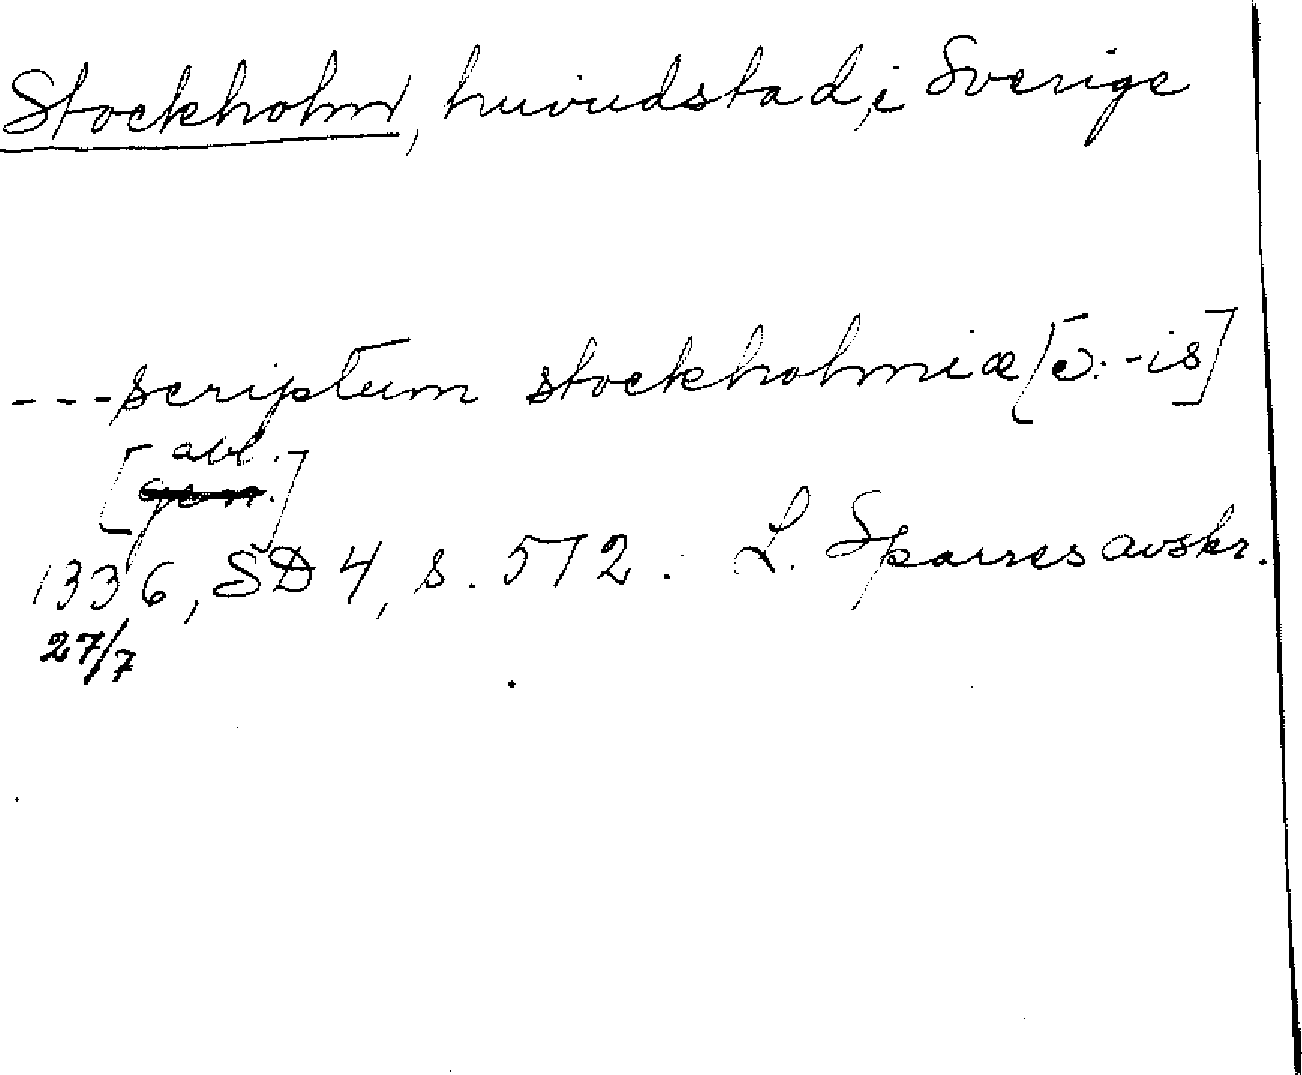 Stockholm, huvudstad i Sverige
---scriptum stockholmiæ [ɔ: -is]
[abl.
gen.]
1336, SD 4, s. 572. L. Sparres avskr.
27/7